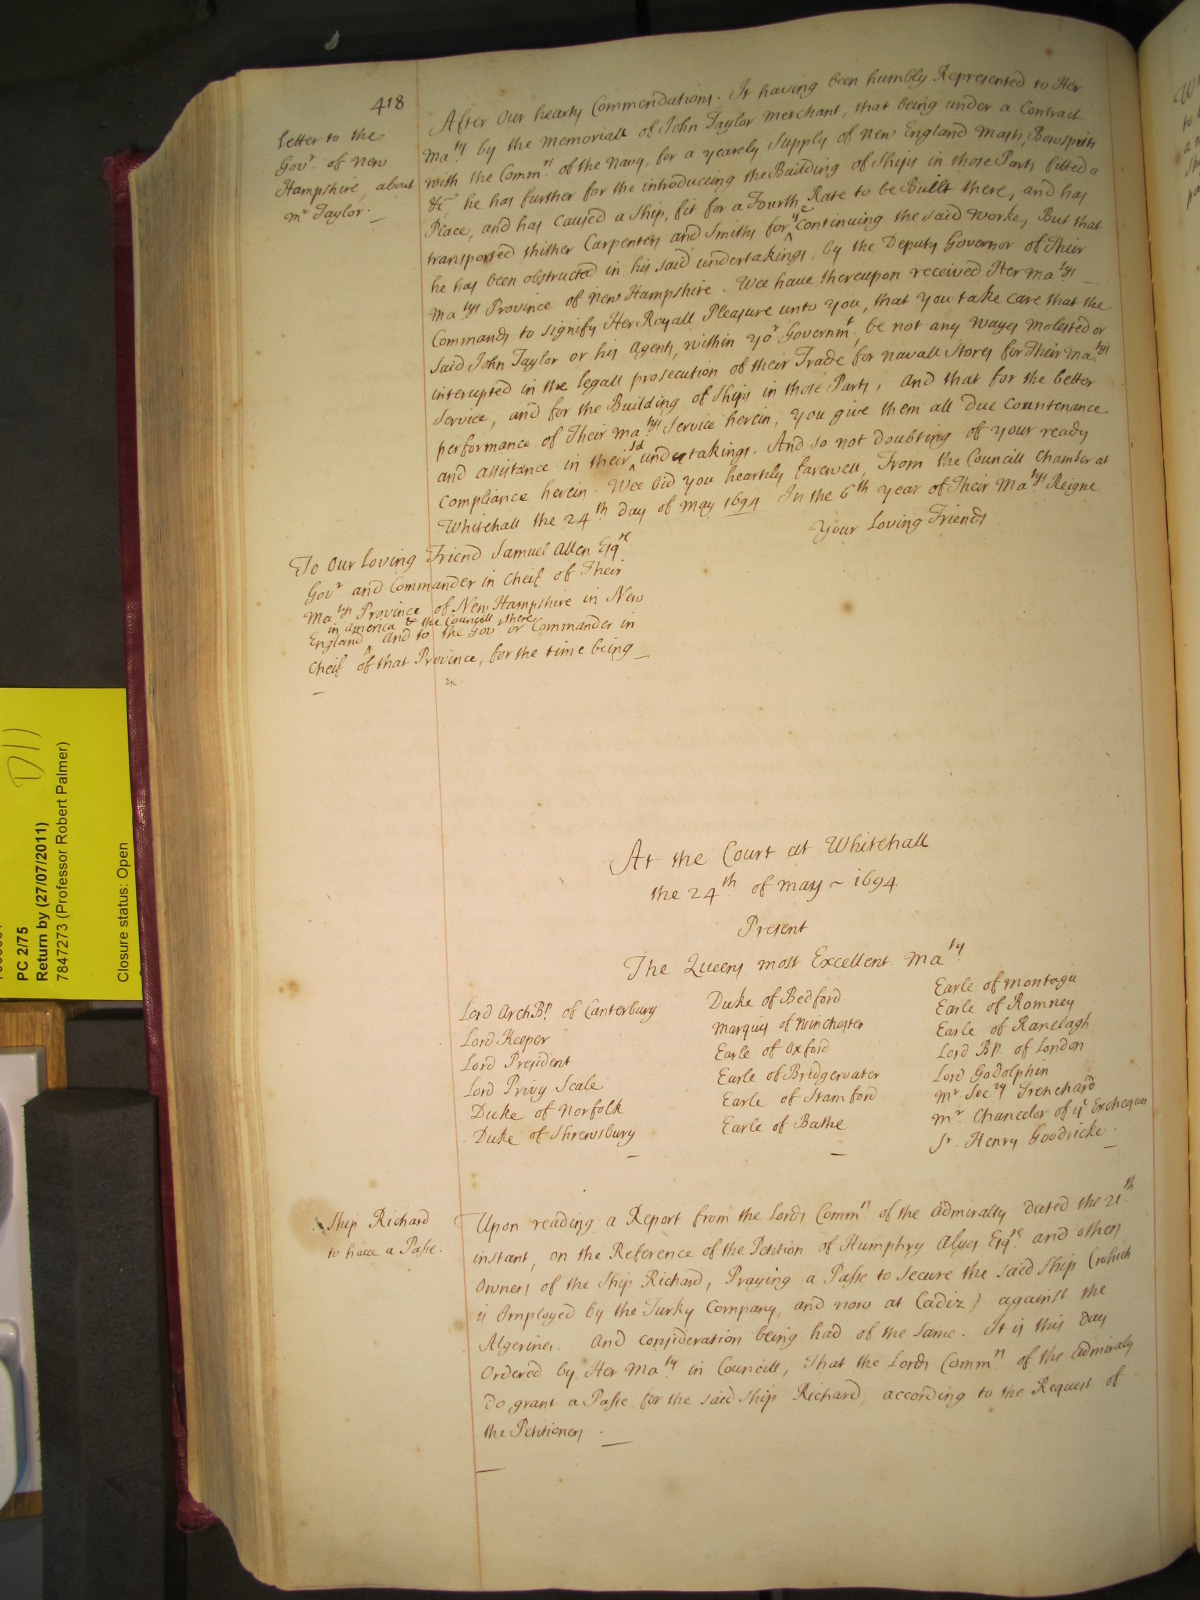 418
Letter to the
Gov.r of New
Hampshire, about
mr Taylor.
After Our hearty Commendations. It having been humbly Represented to Her
Ma.ty by the memoriall of John Taylor merchant, that being under a Contract
with the Comm.rs of the Navy, for a yearely Supply of New England Masts, Bowsprits
&c, he has further for the introduceing the Building of Ships in those Parts fitted a
Place, and has caused a Ship, fit for a Fourth Rate to be Built there, and has
transported thither Carpenters and Smiths for ye Continuing the said Worke, But that
he has been obstructed in his said undertakings, by the Deputy Governor of Their
Ma.tys Province of New Hampshire. Wee have thereupon received Her Ma.tys
Commands to signify Her Royall Pleasure unto you, that you take care that the
said John Taylor or his Agents, within yor Governmt, be not any wayes molested or
interupted in the legall prosecution of their Trade for navall Stores for Their Ma.tys
Service, and for the Building of Ships in those Parts, and that for the better
performance of Their Ma.tys Service herein, you give them all due Countenance
and assistance in their sd undertakings. And so not doubting of your ready
Compliance herein. Wee bid you heartily farewell, From the Councill Chamber at
Whitehall the 24th day of May 1694 In the 6th year of Their Ma.tys Reigne
Your Loving Friends
To Our Loving Friend Samuel Allen Esqre
Govr and Commander in Cheif of Their
Ma.tys Province of New Hampshire in New
in America & the Councill there
England and to the Govr or Commander in
Cheif of that Province, for the time being
At the Court at Whitehall
the 24th of May ~ 1694
Present
The Queens most Excellent Ma.ty
Lord ArchBp. of Canterbury
Lord Keeper
Lord President
Lord Privy Seale
Duke of Norfolk
Duke of Shrewsbury
Duke of Bedford
Marquis of Winchester
Earle of Oxford
Earle of Bridgewater
Earle of Stamford
Earle of Bathe
Earle of Montagu
Earle of Romney
Earle of Ranelagh
Lord Bp. of London
Lord Godolphin
Mr. Secry Trenchard
Mr. Chancelor of ye Exchequer
Sr. Henry Goodricke
Ship Richard
to have a Passe.
Upon reading a Report from the Lords Comm.rs of the Admiralty dated the 21th
instant, on the Reference of the Petition of Humphry Esqre and others
Owners of the Ship Richard, Praying a Passe to secure the said Ship (which
is Employed by the Turky Company, and now at Cadiz) against the
Algerines. And consideration being had of the same. It is this day
Ordered by Her Ma.ty in Councill, That the Lords Comm.rs of the Admiralty
Do grant a Passe for the said Ship Richard, according to the Request of
the Petitioners
PC 2/75
Return by (27/07/2011)
7847273 (Professor Robert Palmer)
Closure status: Open